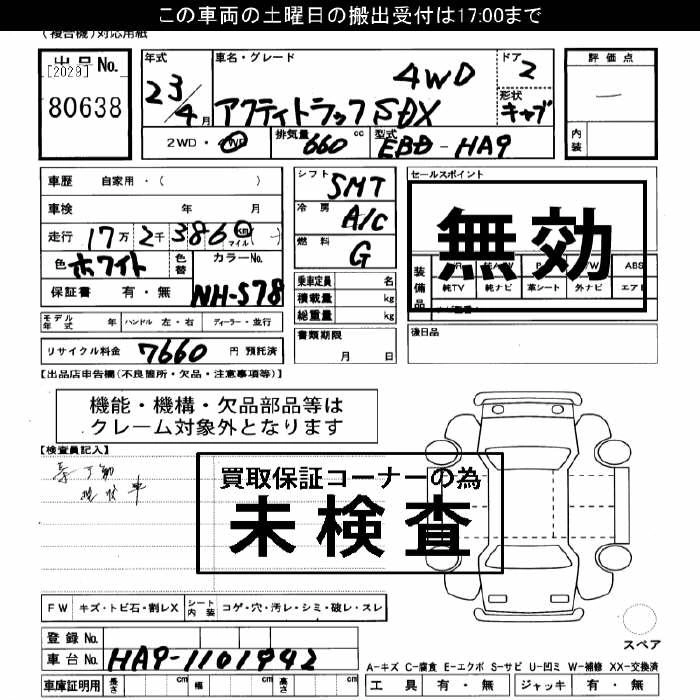 この車両の土曜日の搬出受付は17:00まで
(複合機)対応用紙
出品No.
[2029]
80638
年式
23/4月
車名・グレード
4WD
アクティトラックSDX
ドア
2
形状
キャブ
2WD・4WD
排気量
660
cc
型式
EBD-HA9
評価点
内装
車歴 自家用・( )
車検 年 月
走行 17万 2千 386 km マイル ( )
色 ホワイト
色替
カラーNo.
NH-578
保証書 有・無
シフト
5MT
冷房
A/C
燃料
G
乗車定員 名
積載量 kg
総重量 kg
書類期限
月 日
セールスポイント
無効
装備品
ABS
純TV
純ナビ
革シート
外ナビ
エアB
後日品
モデル年式 年
ハンドル 左・右
ディーラー・並行
リサイクル料金 7660 円 預託済
【出品店申告欄(不良箇所・欠品・注意事項等)】
機能・機構・欠品部品等は
クレーム対象外となります
【検査員記入】
買取保証コーナーの為
未検査
FW キズ・トビ石・割レX
シート内装 コゲ・穴・汚レ・シミ・破レ・スレ
登録No.
車台No. HA9-1101942
車庫証明用 長さ cm 幅 cm 高さ cm
スペア
A-キズ C-腐食 E-エクボ S-サビ U-凹ミ W-補修 XX-交換済
工具 有・無 ジャッキ 有・無